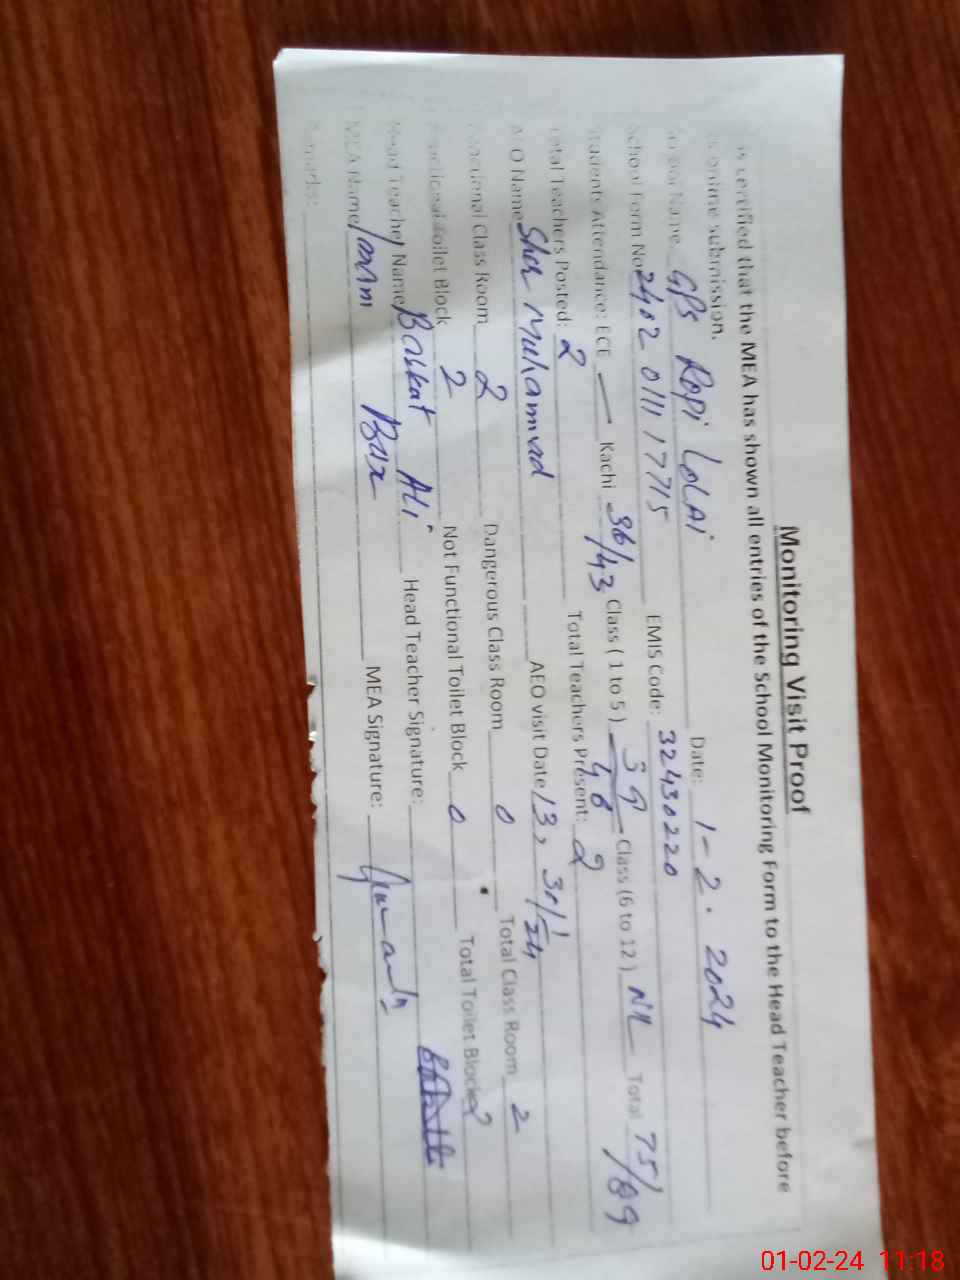 Monitoring Visit Proof
is certified that the MEA has shown all entries of the School Monitoring Form to the Head Teacher before
online submission.
Name GPS Ropi Lolai Date: 1-2. 2024
School Form No 2402 0111 17715 EMIS Code: 32430220
Students Attendance: ECE — Kachi 36/43 Class ( 1 to 5 ) 39/46 Class (6 to 12 ) Nil Total 75/89
Total Teachers Posted: 2 Total Teachers Present: 2
AEO Name Sher Muhammad AEO visit Date
Functional Class Room 2 Dangerous Class Room 0 Total Class Room 2
Functional Toilet Block 2 Not Functional Toilet Block 0 Total Toilet Block 2
Head Teacher Name Baskat Ali Head Teacher Signature:
MEA Name Imam Bax MEA Signature:
Remarks:
01-02-24 11:18